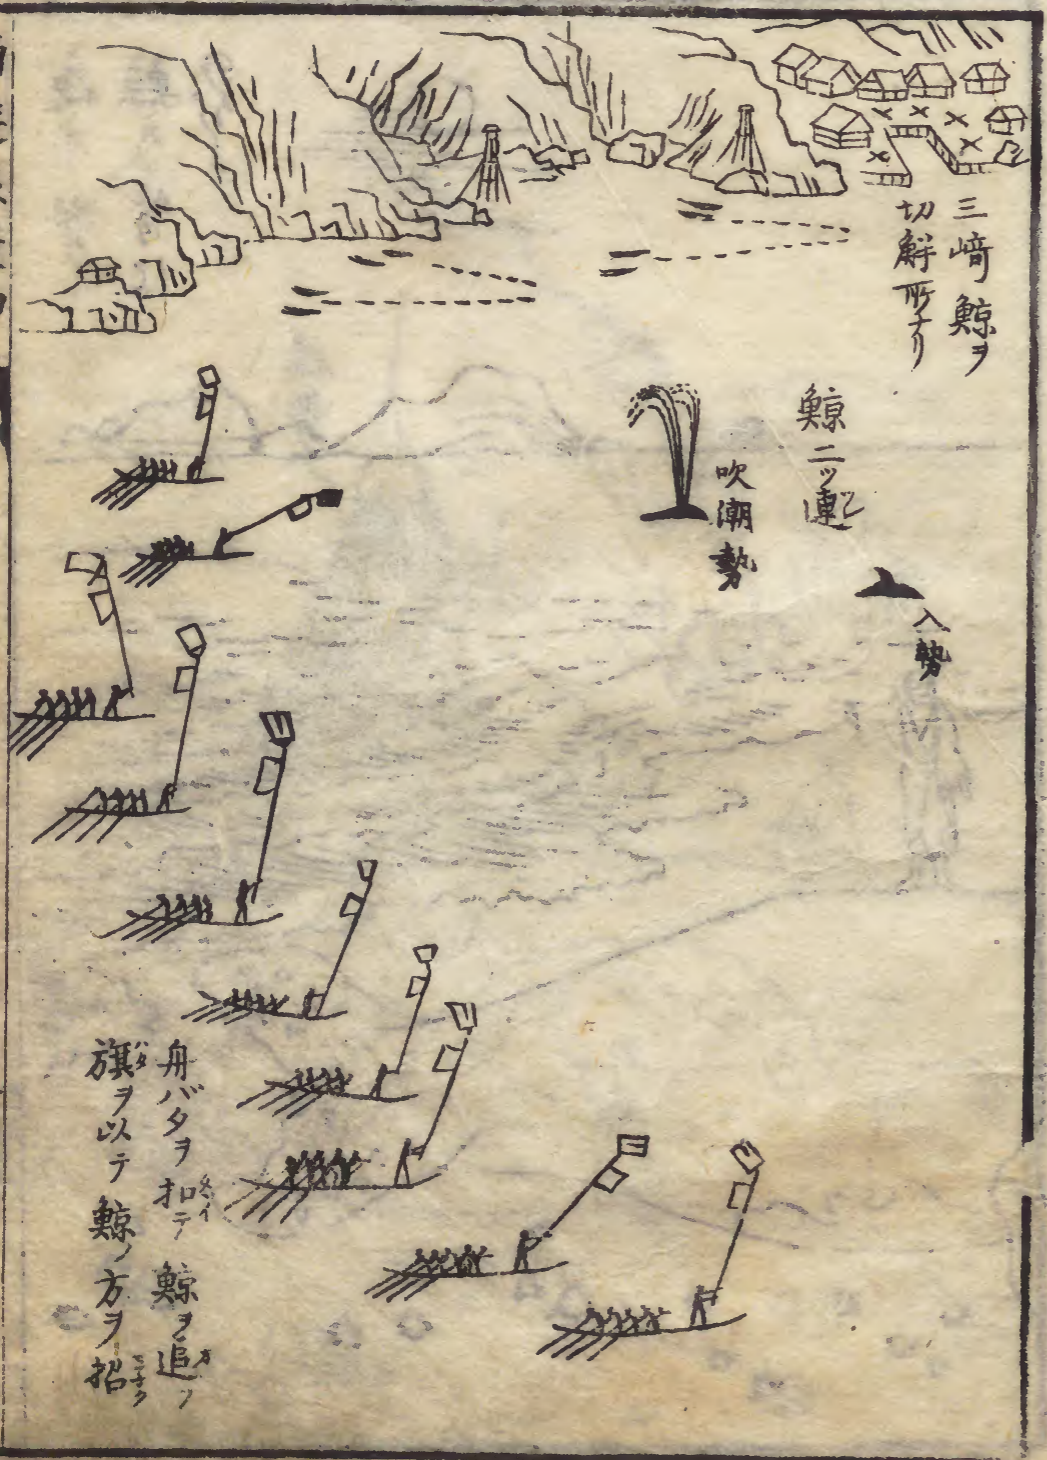 三﨑鯨ヲ
切解所ナリ
鯨二ツ連レ
吹潮勢
入勢
舟バタヲ扣テ鯨ヲ追フ
旗ヲ以テ鯨ノ方ヲ招